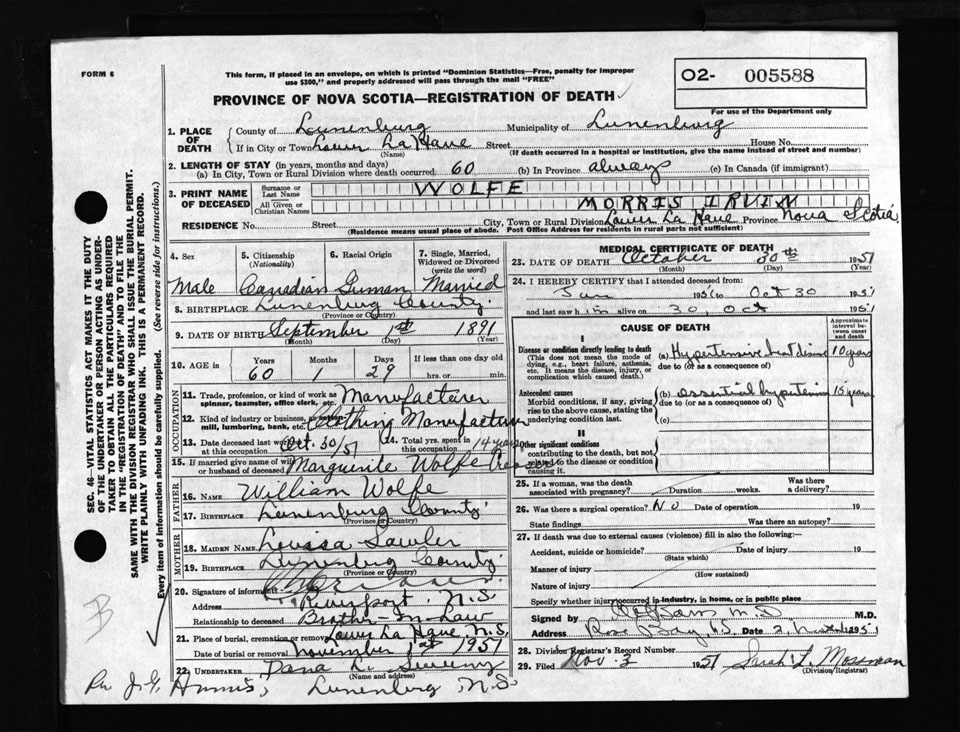 FORM 6
This form, if placed in an envelope, on which is printed "Dominion Statistics—Free, penalty for improper
use $300," and properly addressed will pass through the mail "FREE"
O2- 005588
For use of the Department only
PROVINCE OF NOVA SCOTIA—REGISTRATION OF DEATH
1. PLACE OF DEATH
County of Lunenburg Municipality of Lunenburg
If in City or Town Lower La Have Street House No.
(Name) (If death occurred in a hospital or institution, give the name instead of street and number)
2. LENGTH OF STAY (in years, months and days)
(a) In City, Town or Rural Division where death occurred 60 (b) In Province always (c) In Canada (if immigrant)
3. PRINT NAME OF DECEASED
Surname or Last Name WOLFE
All Given or Christian Names MORRIS IRVIN
RESIDENCE No. Street City, Town or Rural Division Lower La Have Province Nova Scotia
(Residence means usual place of abode. Post Office Address for residents in rural parts not sufficient)
4. Sex 5. Citizenship (Nationality) 6. Racial Origin 7. Single, Married, Widowed or Divorced (write the word)
Male Canadian German Married
8. BIRTHPLACE Lunenburg County
(Province or Country)
9. DATE OF BIRTH September 1st 1891
(Month) (Day) (Year)
10. AGE in Years Months Days If less than one day old
60 1 29 hrs. or min.
OCCUPATION
11. Trade, profession, or kind of work as spinner, teamster, office clerk, etc. Manufacturer
12. Kind of industry or business, as mill, lumbering, bank, etc. Clothing Manufacture
13. Date deceased last worked at this occupation Oct. 30/51 14. Total yrs. spent in this occupation 14 years
15. If married give name of wife or husband of deceased Marguerite Wolfe
FATHER
16. NAME William Wolfe
17. BIRTHPLACE Lunenburg County
(Province or Country)
MOTHER
18. MAIDEN NAME Lovissa Lawler
19. BIRTHPLACE Lunenburg County
(Province or Country)
20. Signature of informant
Address Riverport. N.S
Relationship to deceased Brother-In-Law
21. Place of burial, cremation or removal Lower La Have, N.S,
Date of burial or removal November 1st 1951
22. UNDERTAKER Dana L. Sweeny
(Name and address)
Per J.G. Lunenburg N.S.
MEDICAL CERTIFICATE OF DEATH
23. DATE OF DEATH October 30th 1951
(Month) (Day) (Year)
24. I HEREBY CERTIFY that I attended deceased from:
Jan 1951 to Oct 30 1951
and last saw him alive on 30, Oct 1951
CAUSE OF DEATH
Approximate interval between onset and death
I
Disease or condition directly leading to death
(This does not mean the mode of dying, e.g., heart failure, asthenia, etc. It means the disease, injury, or complication which caused death.)
(a) Hypertensive heart disease 10 years
due to (or as a consequence of)
Antecedent causes
Morbid conditions, if any, giving rise to the above cause, stating the underlying condition last.
(b) essential hypertension 15 years
due to (or as a consequence of)
(c)
II
Other significant conditions
contributing to the death, but not related to the disease or condition causing it.
25. If a woman, was the death associated with pregnancy? Duration weeks. Was there a delivery?
26. Was there a surgical operation? No Date of operation 19
State findings Was there an autopsy?
27. If death was due to external causes (violence) fill in also the following:—
Accident, suicide or homicide? Date of injury 19
(State which)
Manner of injury
(How sustained)
Nature of injury
Specify whether injury occurred in industry, in home, or in public place
Signed by M.D M.D.
Address Rose Bay, N.S. Date 2, 1951
28. Division Registrar's Record Number
29. Filed Nov. 3 1951 Sarah L. Mossman
(Division Registrar)
SEC. 46—VITAL STATISTICS ACT MAKES IT THE DUTY
OF THE UNDERTAKER OR PERSON ACTING AS UNDER-
TAKER TO OBTAIN ALL THE PARTICULARS REQUIRED
IN THE "REGISTRATION OF DEATH" AND TO FILE THE
SAME WITH THE DIVISION REGISTRAR WHO SHALL ISSUE THE BURIAL PERMIT.
WRITE PLAINLY WITH UNFADING INK. THIS IS A PERMANENT RECORD.
Every item of information should be carefully supplied. (See reverse side for instructions.)